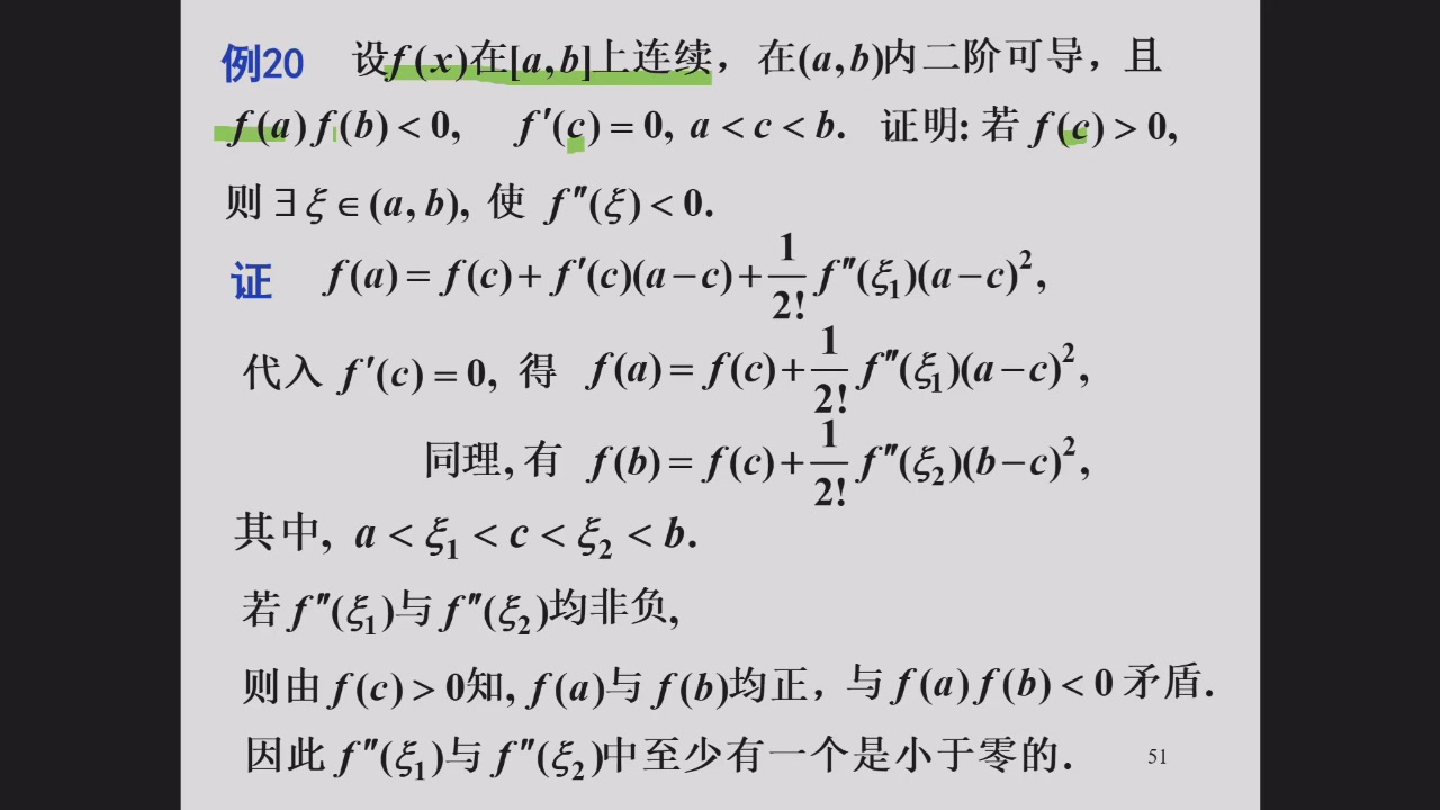 例20 设f(x)在[a,b]上连续，在(a,b)内二阶可导，且
f(a)f(b)<0, f′(c)=0, a<c<b. 证明: 若 f(c)>0,
则 ∃ξ∈(a,b), 使 f″(ξ)<0.
证 f(a)=f(c)+f′(c)(a−c)+\frac{1}{2!}f″(ξ₁)(a−c)²,
代入 f′(c)=0, 得 f(a)=f(c)+\frac{1}{2!}f″(ξ₁)(a−c)²,
同理, 有 f(b)=f(c)+\frac{1}{2!}f″(ξ₂)(b−c)²,
其中, a<ξ₁<c<ξ₂<b.
若 f″(ξ₁)与 f″(ξ₂)均非负,
则由 f(c)>0知, f(a)与 f(b)均正，与 f(a)f(b)<0 矛盾.
因此 f″(ξ₁)与 f″(ξ₂)中至少有一个是小于零的.
51